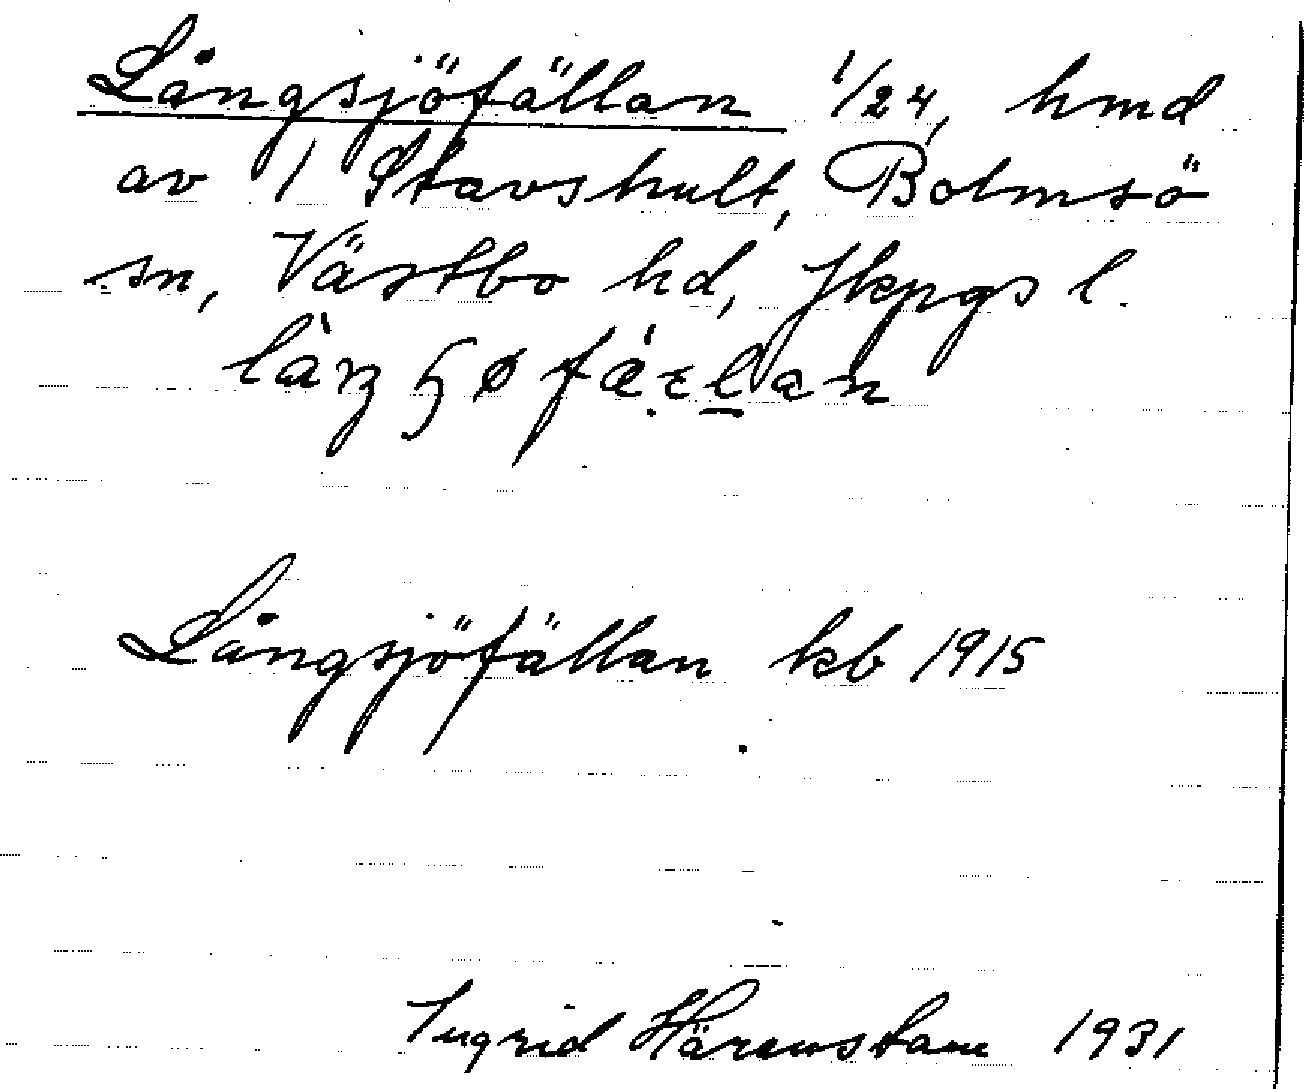 Långsjöfällan 1/24, hmd
av 1 Stavshult, Bolmsö
sn, Västbo hd, Jkpgs l.
Långsjöfällan kb 1915
Ingrid Härenstam 1931